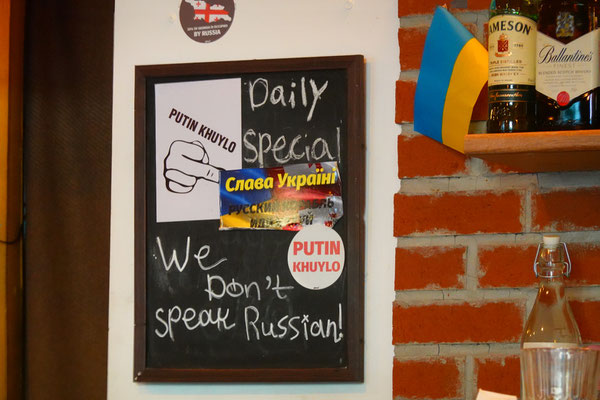 BY RUSSIA
Daily
Special
PUTIN KHUYLO
Слава Україні
РУССКИЙ
PUTIN
KHUYLO
We
Don't
speak Russian!
JAMESON
Ballantine's